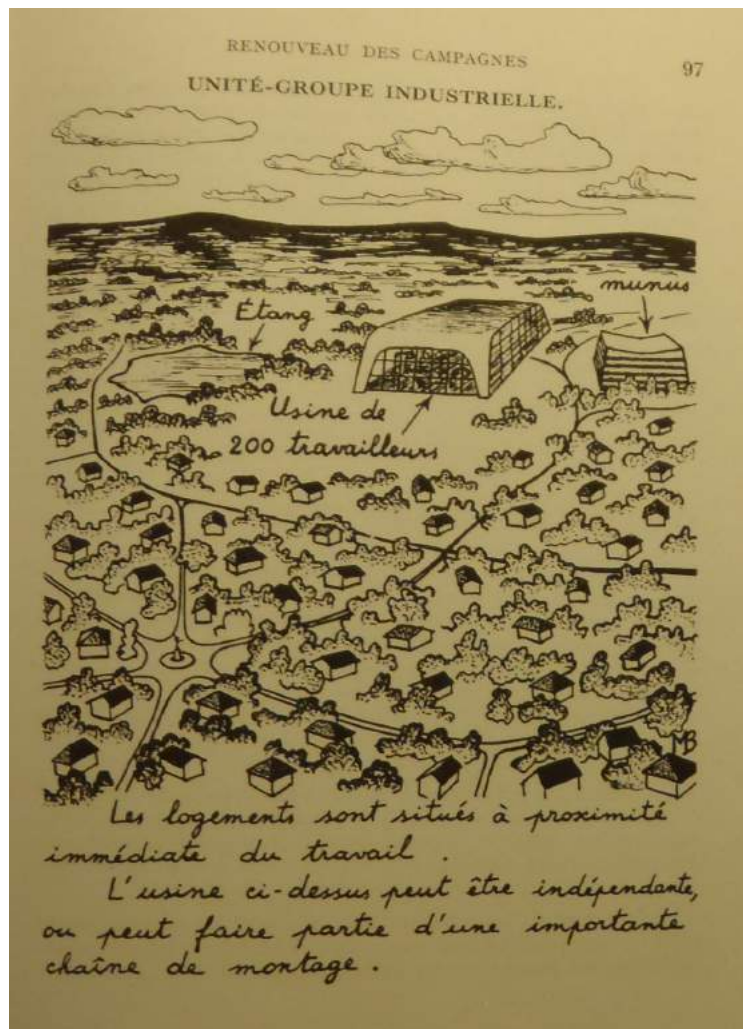 RENOUVEAU DES CAMPAGNES
97
UNITÉ-GROUPE INDUSTRIELLE.
munus
Étang
Usine de
200 travailleurs
MB
Les logements sont situés à proximité
immédiate du travail .
L'usine ci-dessus peut être indépendante,
ou peut faire partie d'une importante
chaîne de montage .